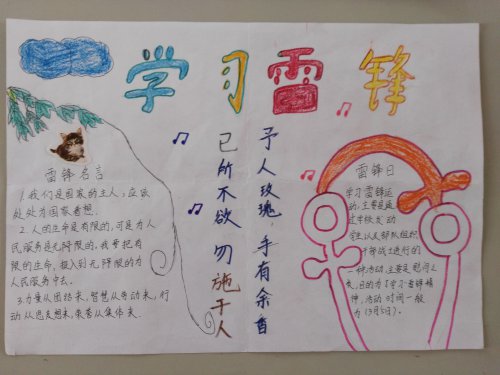 学习雷锋
雷锋名言
1.我们是国家的主人，应该
处处为国家着想.
2.人的生命是有限的，可是为人
民服务是无限的，我要把有
限的生命，投入到无限的为
人民服务中去。
3.力量从团结来，智慧从劳动来，行
动从思想来，荣誉从集体来.
己所不欲勿施于人
予人玫瑰，手有余香
雷锋日
学习雷锋运
动，主要是通
过学校发动
学生以及部队组织
干部战士进行的
一种活动.主要是
日的为了学习雷锋精
神，活动时间一般
为（3月5日）.